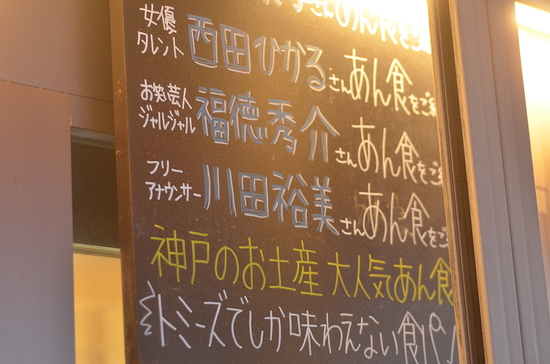 さんあん食をご
女優
タレント
西田ひかるさんあん食をご
お笑い芸人
ジャルジャル
福徳秀介さんあん食をご
フリー
アナウンサー
川田裕美さんあん食をご
神戸のお土産大人気あん食
トミーズでしか味わえない食パン